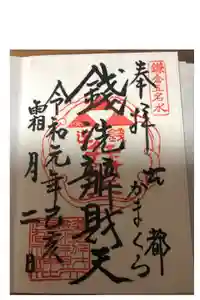 鎌倉五名水
奉拝
古都
かまくら
銭洗辨財天
令和元年己亥
霜月二日